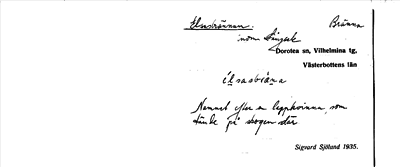 Elsabrännan. Bränna
inom Långsele
Dorotea sn, Vilhelmina tg.
Västerbottens län
Namnet efter en lappkvinna, som
tände på skogen där
Sigvard Sjölund 1935.